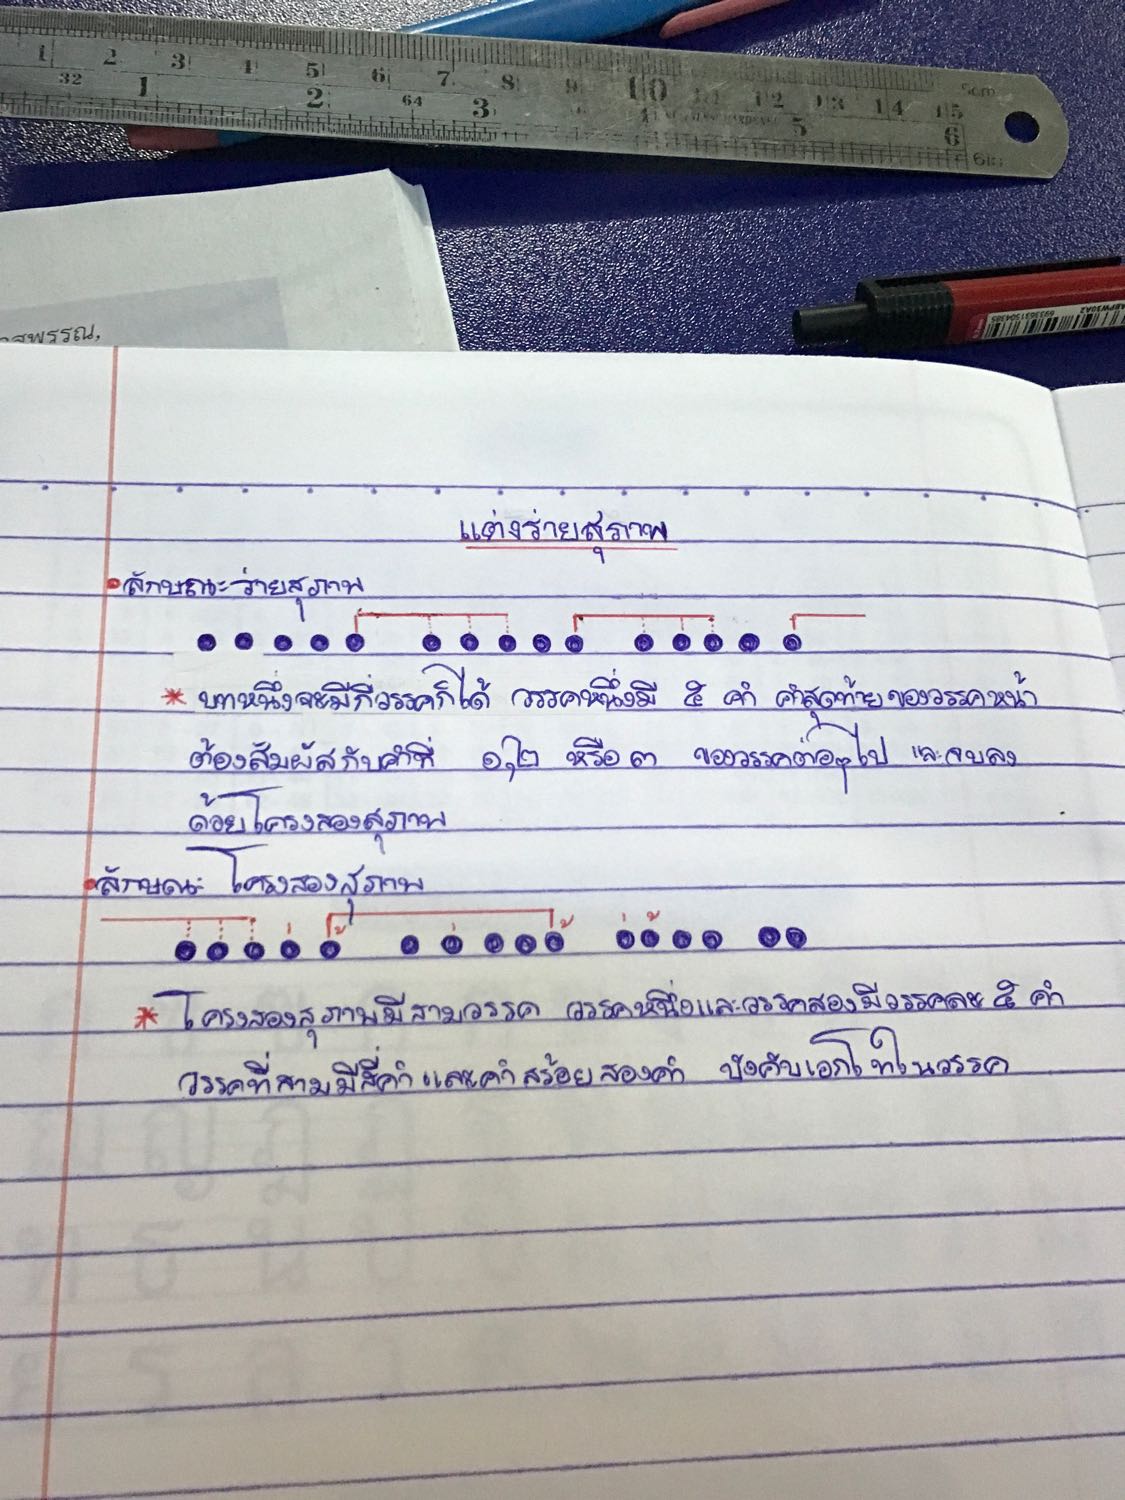 1 2 3 4 5 6 7 8 9 10 11 12 13 14 15 5cm
32 1 2 64 3 5 6 6in
สพรรณ,
6935631504385
แต่งร่ายสุภาพ
ลักษณะร่ายสุภาพ
* บทหนึ่งจะมีกี่วรรคก็ได้ วรรคหนึ่งมี ๕ คำ คำสุดท้ายของวรรคหน้า
ต้องสัมผัสกับคำที่ ๑,๒ หรือ ๓ ของวรรคต่อๆไป และจบลง
ด้วยโครงสองสุภาพ
ลักษณะ โครงสองสุภาพ
* โครงสองสุภาพมีสามวรรค วรรคหนึ่งและวรรคสองมีวรรคละ ๕ คำ
วรรคที่สามมีสี่คำและคำสร้อยสองคำ บังคับเอกโทในวรรค